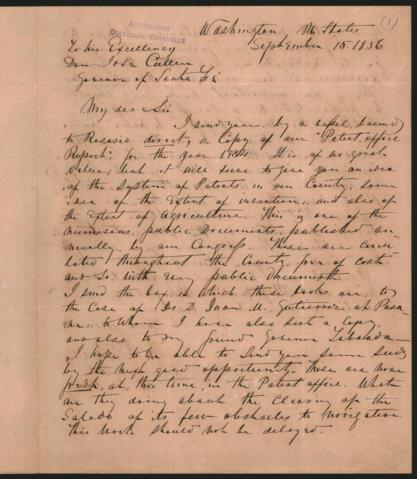 (1)
Washington U. States
September 15 1856
To his Excellency
Don José Cullen
Governor of Santa Fé
My dear Sir
I send you, by a vessel bound
to Rosario direct, a Copy of our "Patent office
Report", for the year 1854. It is of no great
value, but it will serve to give you an idea
of the System of Patents in our Country, some
idea of the Extent of invention, and also of
the Extent of Agriculture. This is one of the
numerous public Documents, published an-
nually by our Congress. These are circu
lated throughout the Country, free of cost
and so with very public documents
I send the box, in which these books are, to
the Care of Dr. D. Juan M. Gutierrez at
to whom I have also sent a Copy
and also to my friend Governor
I hope to be able to send you some seeds
by the next good opportunity. There are none
fresh, at this time in the Patent office. What
are they doing about the Clearing of the
Salado of its few obstacles to navigation
This work should not be delayed.